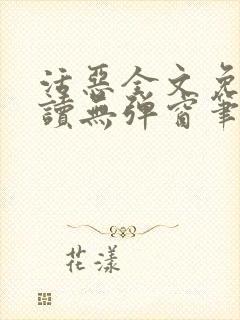 活惡全文免
讀無彈窗筆
花漾